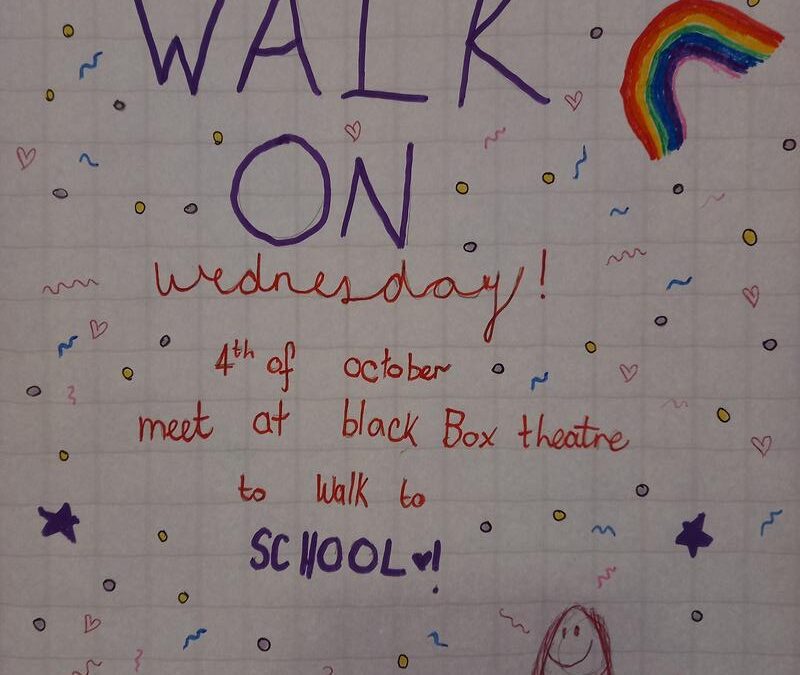 WALK
ON
Wednesday!
4th of october
meet at black Box theatre
to Walk to
SCHOOL!